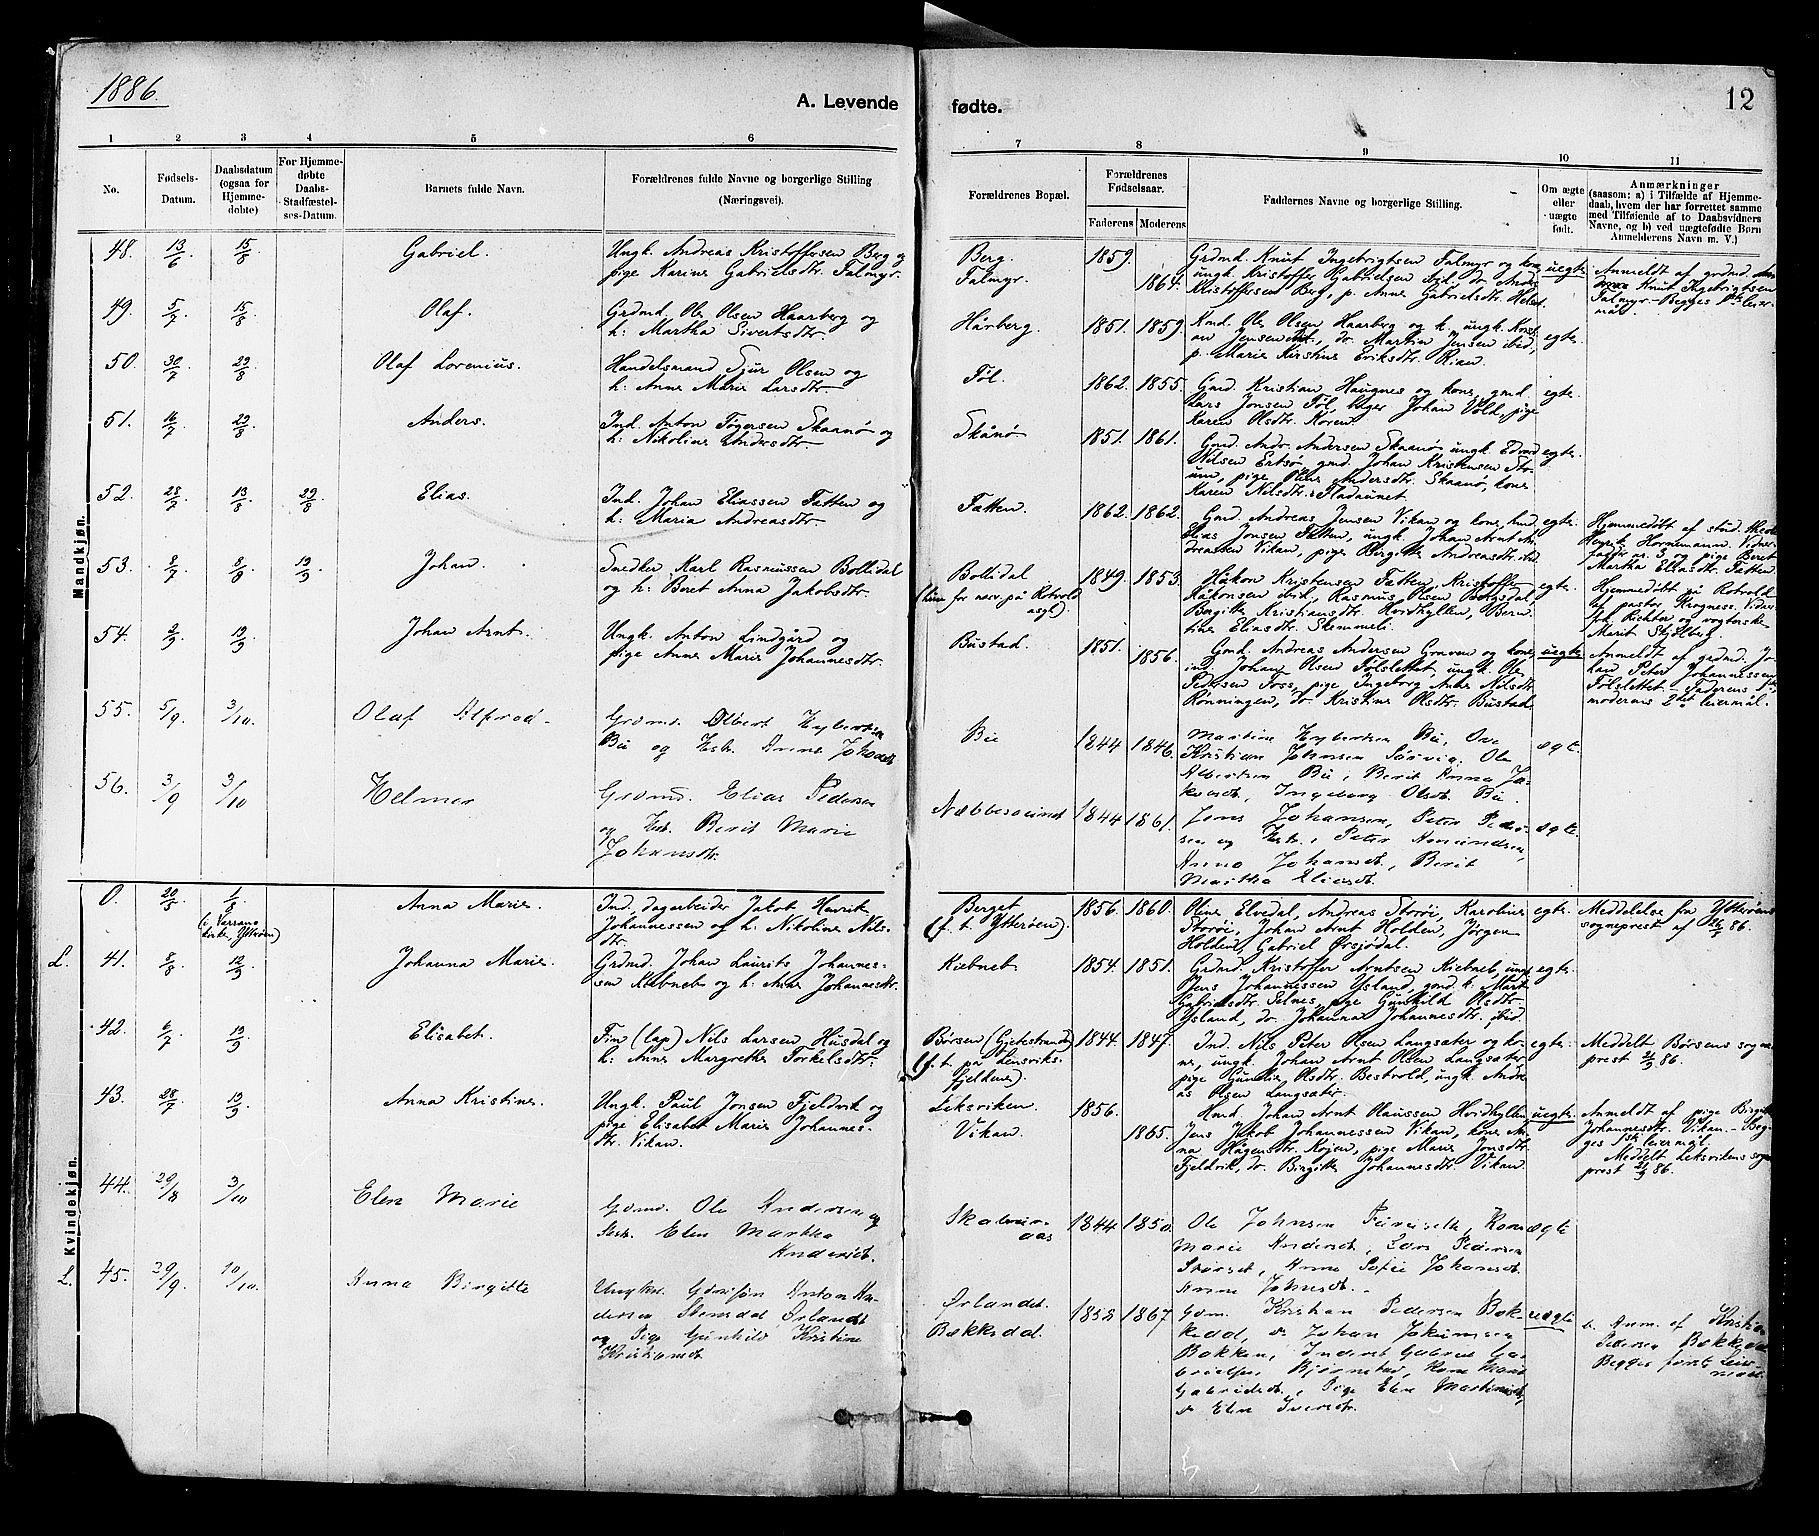 1886.
A. Levende
fødte.
12
1 2 3 4 5 6
7 8 9 10 11
No.
Fødsels-
Datum.
Daabsdatum
(ogsaa for
Hjemme-
døbte)
For Hjemme-
døbte
Daabs-
Stadfæstel-
ses-Datum.
Barnets fulde Navn.
Forældrenes fulde Navne og borgerlige Stilling
(Næringsvei).
Forældrenes Bopæl.
Forældrenes
Fødselsaar.
Faderens Moderens
Faddernes Navne og borgerlige Stilling.
Om ægte
eller
uægte
født.
Anmærkninger
(saasom: a) i Tilfælde af Hjemme-
daab, hvem der har forrettet samme
med Tilføiende af to Daabsvidners
Navne, og b) ved uægtefødte Børn
Anmelderens Navn m. V.)
Mandkjøn.
48. 13/6 15/8 Gabriel.
Ungk. Andreas Kristoffersen Berg og
pige Karine Gabrielsdtr. Falmyr.
Berg.
Falmyr.
1859.
1864.
Grdmd. Knut Ingebrigtsen Falmyr og kone,
ungk. Kristoffer Gabrielsen ibid., do. Andr.
Kristoffersen Berg, p. Anne Gabrielsdtr.
uegte.
Anmeldt af grdmd.
Knut Ingebrigtsen
Falmyr - Begges 1ste leier-
mål.
49. 5/7 15/8 Olaf.
Grdmd. Ole Olsen Haarberg og
h: Martha Sivertsdtr.
Hårberg.
1851. 1859.
Kmd. Ole Olsen Haarberg og h., ungk.
Jensen ibid., do. Martin Jensen ibid.,
p. Marie Kirstine Eriksdtr. Rian.
egte.
50. 30/7 29/8 Olaf Lorenius.
Handelsmand Sjur Olsen og
h: Anne Marie Larsdtr.
Føl.
1862. 1855.
Gmd. Kristian Haugnes og kone, gmd.
Lars Jonsen Føl, Johan Vold, pige
Karen Olsdtr. Koren.
egte.
51. 16/7 29/8 Anders.
Ind. Anton Tøgersen Skaanø og
h: Nikoline Andersdtr.
Skånø.
1851. 1861.
Gmd. Andr. Andersen Skaanø, ungk. Edvard
Nilsen Ertsø, gmd. Johan Kristensen Sto-
um, pige Oline Andersdtr. Skaanø, kone
Karen Nilsdtr. Fladaunet
egte.
52. 28/7 13/8 29/8 Elias.
Ind. Johan Eliassen Fatten og
h: Maria Andreasdtr.
Fatten.
1862. 1862.
Gmd. Andreas Jensen Vikan og kone, kmd.
Elias Jonsen Fatten, ungk. Johan Arnt An-
dreassen Vikan, pige Birgitte Andreasdtr. ibid.
egte.
Hjemmedøbt af stud.
Henrik Hornemann. Vidner
fadder nr. 3 og pige Beret
Martha Eliasdtr. Fatten.
53. 2/7 2/8 19/9 Johan.
Snedker Karl Rasmussen Bollidal
og h: Beret Anna Jakobsdtr.
Bollidal
for nerv. på Rotvold
asyl).
1849. 1853.
Håkon Kristensen Fatten, Kristoffer
Håkonsen ibid., Rasmus Olsen Bergsdal,
Birgitte Kristiansdtr. Hvidhyllen, Bern-
tine Eliasdtr. Skemmeli.
egte.
Hjemmedøbt på Rotvold
af pastor Krogness. Vidner
Joh. Richter og vogterske
Marit Skjølberg.
54. 2/9 19/9 Johan Arnt.
Ungk. Anton Lindgård og
pige Anne Marie Johannesdtr.
Bustad.
1851.
1856.
Gmd. Andreas Andersen Graven og kone,
ind. Johan Olsen Følslettet, ungk. Ole
Pedersen Foss, pige Ingeborg Anne Nilsdtr.
Rønningen, do. Kristine Olsdtr. Bustad.
uegte.
Anmeldt af grdmd. Jo-
han Peter Johannessen
Følslettet - Faderens 1ste,
moderens 2det leiermål.
55. 5/9 3/10. Olaf Alfred
Grdmd. Albert
Bü og Hstr. Anne
Bü
1844 1846.
Martine Bü, Ove
Kristian Johnsen Sørvig, Ole
Albertsen Bü, Berit Anna Ja-
kobsdt., Ingeborg Olsdt. Bü.
ægte.
56. 3/9 3/10 Helmer
Grdmd. Elias Pedersen
og Hstr. Berit Marie
Johansdtr.
Næbbesvindt
1844 1861.
Jens Johansen, Peter Peder-
sen og Hstr., Peter Amundsen,
Anna Johansdt., Berit
Martha Eliasdt.
ægte.
Kvindekjøn.
0. 20/5 1/8
(i Værrans
kirke, Ytterøen)
Anna Marie.
Ind. dagarbeider Jakob Henrik
Johannessen og h: Nikoline Nils-
dtr.
Berget
(f. t. Ytterøen).
1856. 1860.
Oline Elvedal, Andreas Storøi, Karoline
Storøi, Johan Arnt Holden, Jørgen
Holden, Gabriel Ørsjødal.
egte.
Meddelelse fra Ytterøens
sogneprest af 26/7 86.
L. 41. 2/8 12/9 Johanna Marie.
Grdmd. Johan Laurits Johannes-
sen Kiebneb og h: Anne Johannesdtr.
Kiebneb.
1854. 1851.
Grdmd. Kristoffer Arntsen Kiebneb, ungk.
Jens Johannessen Ysland, gmd. k. Marit
Gabrielsdtr. Selnes, pige Gunhild Olsdtr.
Ysland, do. Johanna Johannesdtr. ibid.
egte.
42. 6/7 19/9 Elisabet.
Fin (lap) Nils Larsen Husdal og
h: Anne Margrethe Torkelsdtr.
Børsen (Gjetestrand)
(f. t. på Lensviks-
fjeldene).
1844. 1847.
Ind. Nils Peter Olsen Langsæter og ko-
ne, ungk. Johan Arnt Olsen Langsæter,
pige Olsdtr. Bestvold, ungk. Andre-
as Olsen Langsæter.
egte.
Meddelt Børsens sogne-
prest 21/9 86.
43. 28/7 19/9 Anna Kristine.
Ungk. Paul Jonsen Fjeldvik og
pige Elisabet Marie Johannes-
dtr. Vikan.
Leksviken.
Vikan.
1856.
1865.
Kmd. Johan Arnt Hvidhyllen
Jens Jakob Johannessen Vikan, kone An-
na Hågensdtr. Kojen, pige Marie Jonsdtr.
Fjeldvik, do. Birgitte Johannesdtr. Vikan.
uegte.
Anmeldt af pige Birgitte
Johannesdtr. Vikan. - Beg-
ges 1ste leiermål.
Meddelt Leksvikens sogne-
prest 21/9 86.
44. 29/8 3/10 Elen Marie
Grdmd. Ole Andersen og
Hstr. Elen Martha
Andersdt.
aas
1844 1850.
Ole Johnsen Kone
Marie Andersdt., Lars Pedersen
Anne Sofie Johansdt.
Anne Johnsdt.
ægte
L. 45. 29/9 10/10. Anna Birgitte
Ungkar. Anton An-
dersen Stensdal Ørlandet
og Pige Gunhild Kristine
Kristiansdt.
Ørlandet.
Bækkedal.
1858 1867.
Gdm. Kristian Pedersen Bæk-
kedal, do Johan Jokumsen
Bakken, Inderst Gabriel Ga-
brielsen, Bjørnstad, Kone Marie
Gabrielsdt., Pige Elen Martinsdt.,
do Elen Iversdt.
uægte
b. Anm. af Kristian
Pedersen Bækkedal
Begges første Leier-
maal.